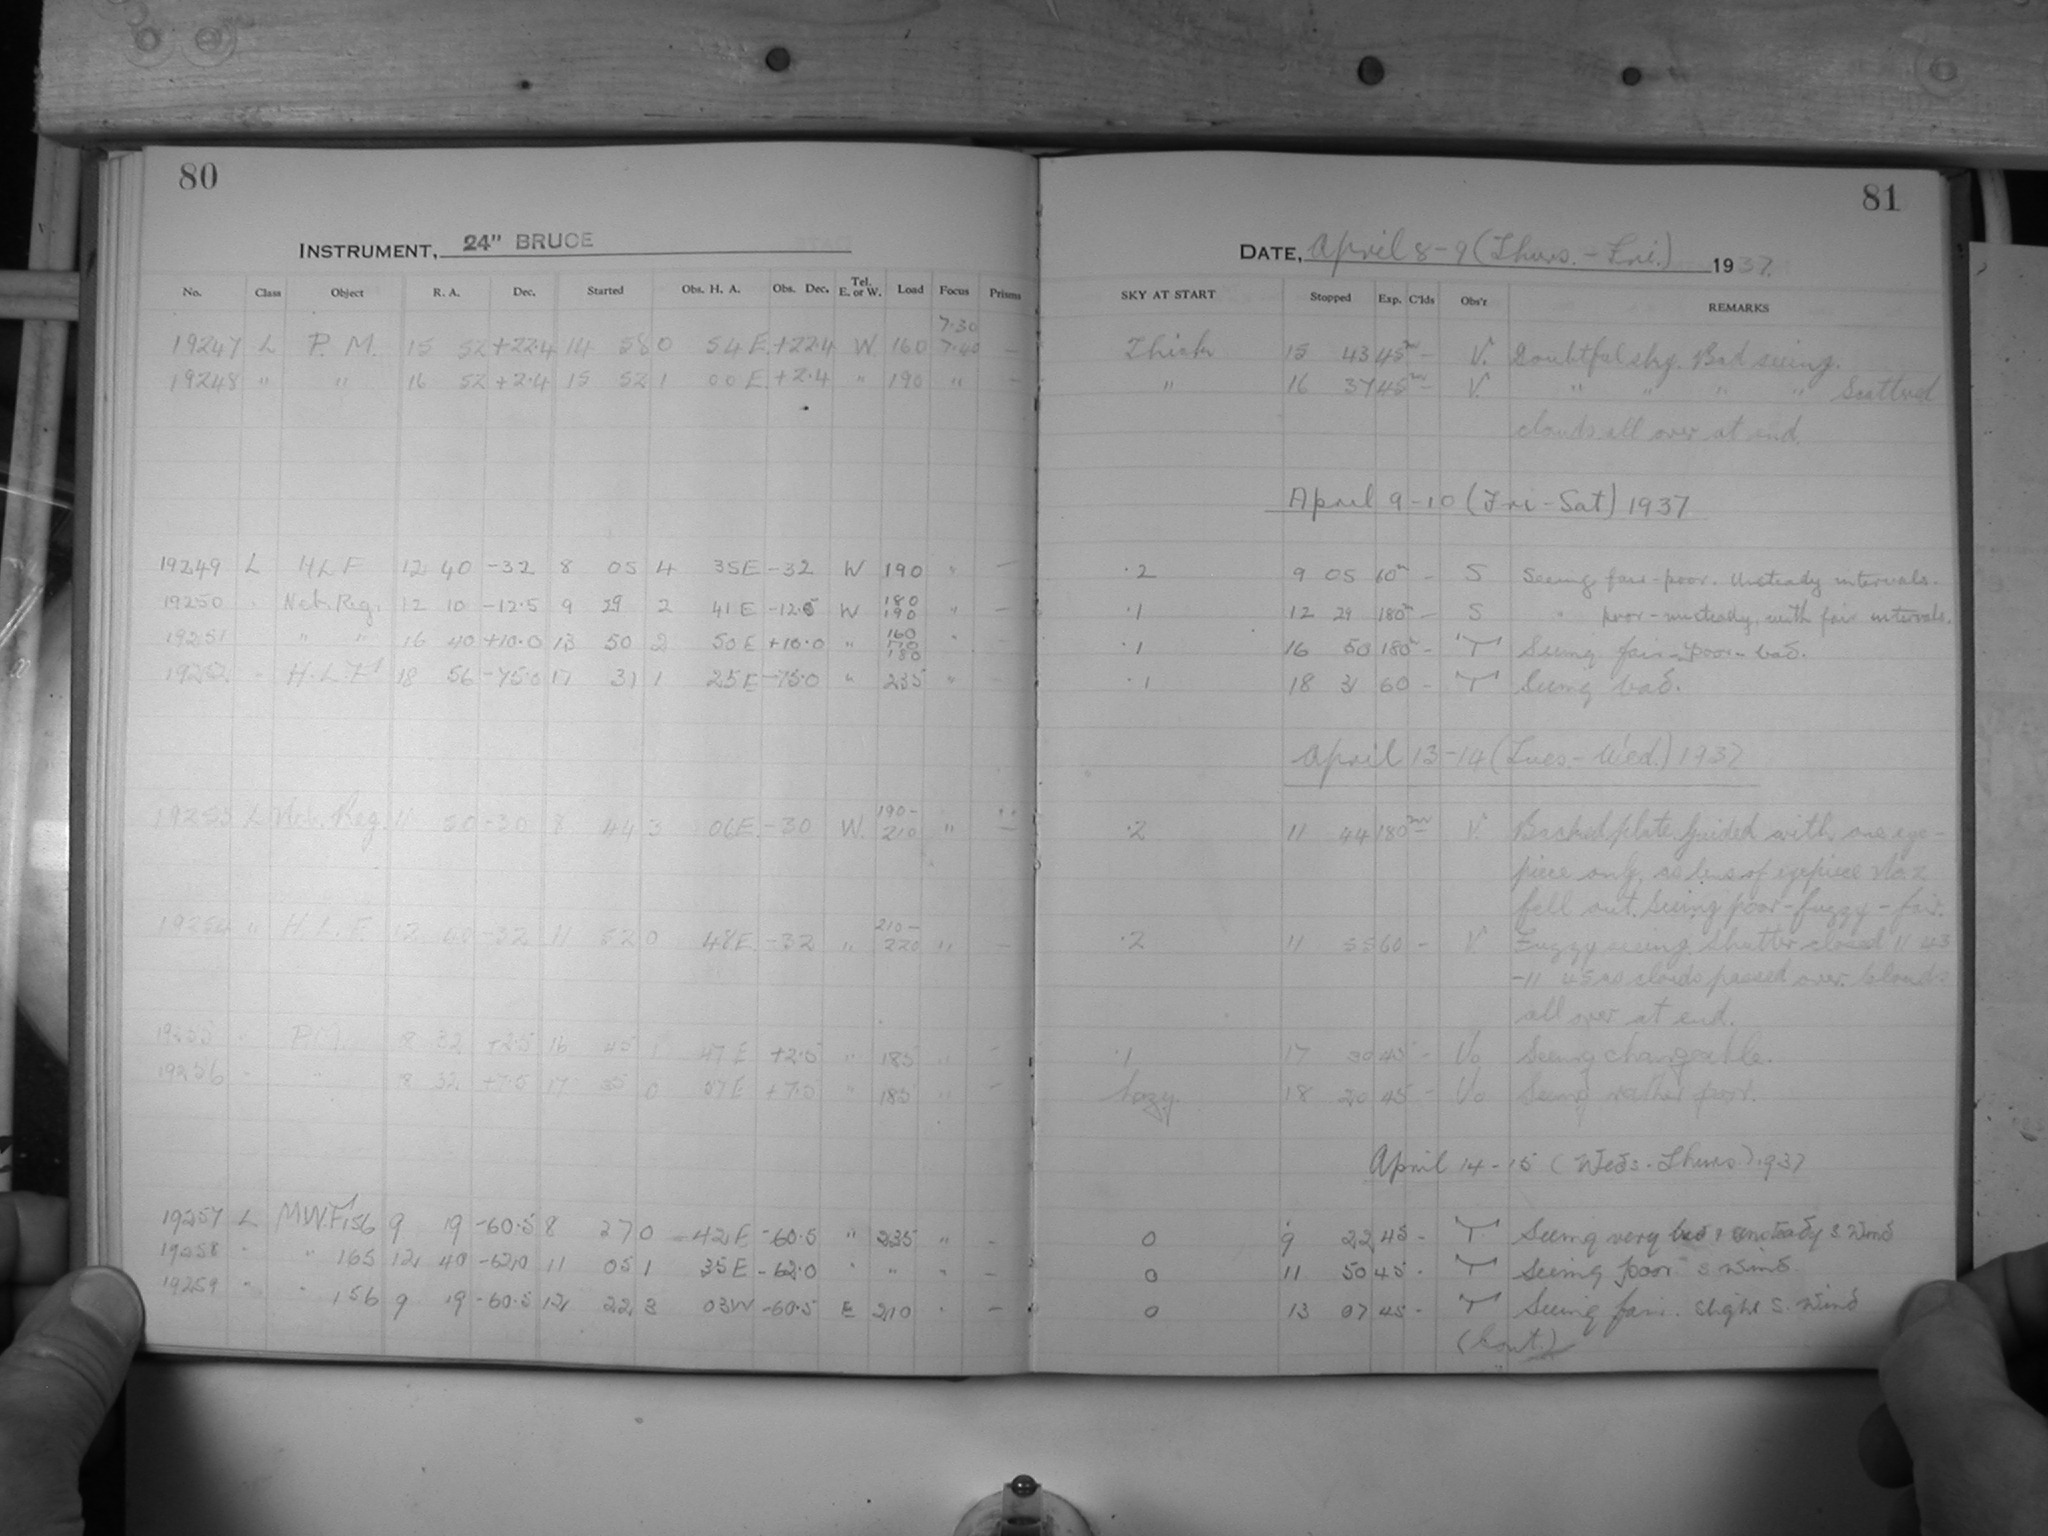 80
INSTRUMENT, 24" BRUCE
No. Class Object R. A. Dec. Started Obs. H. A. Obs. Dec. Tel. E. or W. Load Focus Prisms
7.30
19247 L P. M. 15 52 +22.4 14 58 0 54 E. +22.4 W 160 7.40 —
19248 " " 16 52 +2.4 15 52 1 00 E +2.4 " 190 " —
19249 L HLF 12 40 -32 8 05 4 35E -32 W 190 " —
19250 " Neb. Reg. 12 10 -12.5 9 29 2 41 E -12.5 W 180 190 " —
19251 " " " 16 40 +10.0 13 50 2 50 E +10.0 " 160 170 180 "
19252 " H.L.F 18 56 -75.0 17 31 1 25 E -75.0 " 235 " —
19253 L Neb. Reg. 11 50 -30 8 44 3 06 E. -30 W. 190- 210 " —
19254 " H. L. F. 12 40 -32 11 52 0 48 E. -32 " 210- 220 " —
19255 " P.M. 18 32 +2.5 16 45 1 47 E +2.5 " 185 " —
19256 " " 18 32 +7.5 17 35 0 57 E +7.5 " 185 " —
19257 L MWF156 9 19 -60.5 8 37 0 42 E -60.5 " 235 " -
19258 " " 165 12 40 -62.0 11 05 1 35 E -62.0 " " " —
19259 " " 156 9 19 -60.5 12 22 3 03W -60.5 E 210 " —
81
DATE, April 8-9 (Thurs. - Fri.) 1937.
SKY AT START Stopped Exp. C'lds Obs'r REMARKS
Thick 15 43 45m — V. Doubtful sky. Bad seeing.
" 16 37 45m — V. " " " " Scattered
clouds all over at end.
April 9-10 (Fri-Sat) 1937
.2 9 05 60m - S Seeing fair-poor. Unsteady intervals.
.1 12 29 180m - S " poor-unsteady, with fair intervals.
.1 16 50 180m - T Seeing fair-poor-bad.
.1 18 31 60 - T Seeing bad.
April 13-14 (Tues.-Wed.) 1937
.2 11 44 180m — V. Backed plate. Guided with one eye-
piece only, as lens of eyepiece No 2
fell out. Seeing poor-fuzzy-fair.
.2 11 55 60 - V. Fuzzy seeing. Shutter closed 11 43
-11 45 as clouds passed over. Clouds
all over at end.
.1 17 30 45 - Vo Seeing changeable.
hazy. 18 20 45 - Vo Seeing rather poor.
April 14-15 (Wed. - Thurs.) 1937
0 9 22 45 - T Seeing very bad & unsteady S. Wind
0 11 50 45 - T Seeing poor S wind.
0 13 07 45 - T Seeing fair. slight S. Wind
(Cont.)